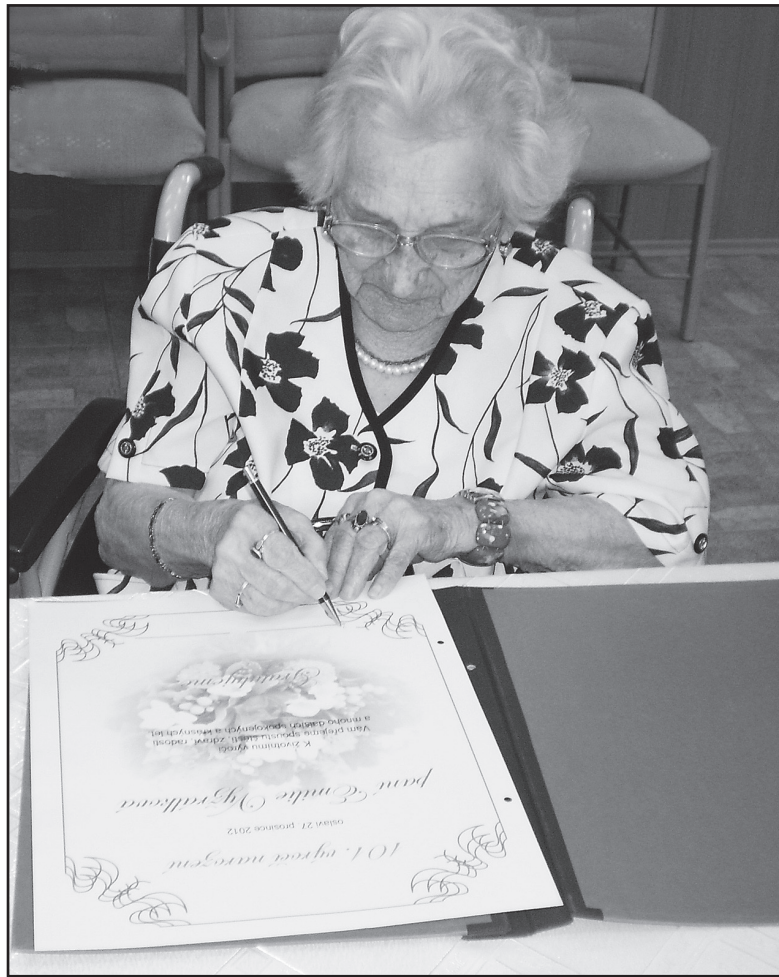 101. výročí narození
oslaví 27. prosince 2012
paní Emilie
K životnímu výročí
Vám přejeme spoustu štěstí, zdraví, radosti
a mnoho dalších spokojených a krásných let
Gratulujeme